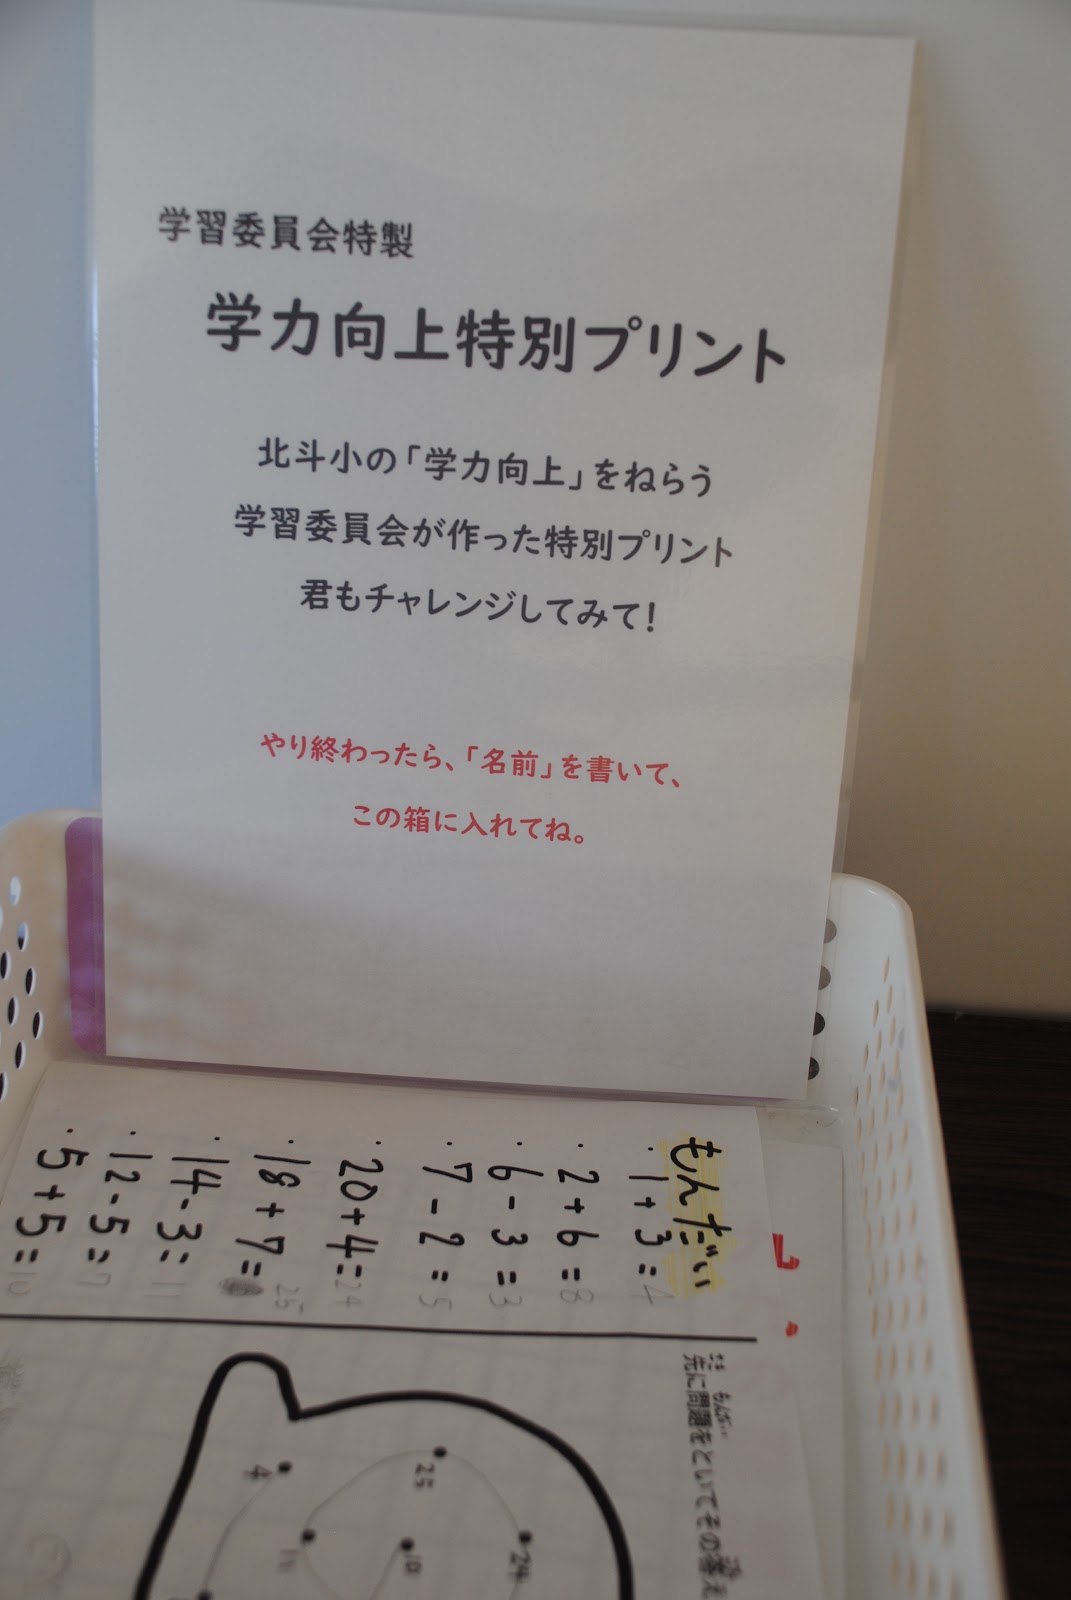 学習委員会特製
学力向上特別プリント
北斗小の「学力向上」をねらう
学習委員会が作った特別プリント
君もチャレンジしてみて!
やり終わったら、「名前」を書いて、
この箱に入れてね。
もんだい
・1+3=4
・2+6=8
・6-3=3
・7-2=5
・20+4=24
・18+7=25
・14-3=11
・12-5=7
・5+5=10
先に問題をといてその答え
25
4
11
10
24